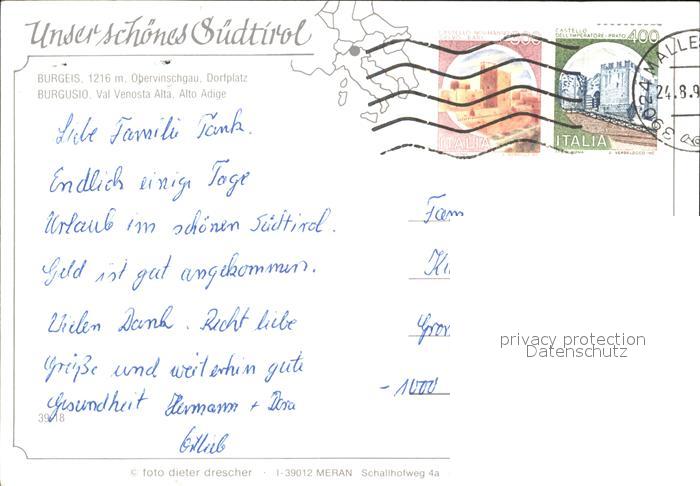 Unser schönes Südtirol
BURGEIS, 1216 m, Opervinschgau, Dorfplatz
BURGUSIO, Val Venosta Alta, Alto Adige
Liebe Familie Tank.
Endlich einige Tage
Urlaub im schönen Südtirol.
Geld ist gut angekommen.
Vielen Dank. Recht liebe
Grüße und weiterhin gute
Gesundheit Hermann +
39/18
CASTELLO
DELL'IMPERATORE - PRATO 400
ITALIA
ITALIA
39024 MALLE
24.8.9
Fam
Gron
- 1000
privacy protection
Datenschutz
© foto dieter drescher · I-39012 MERAN Schallhofweg 4a